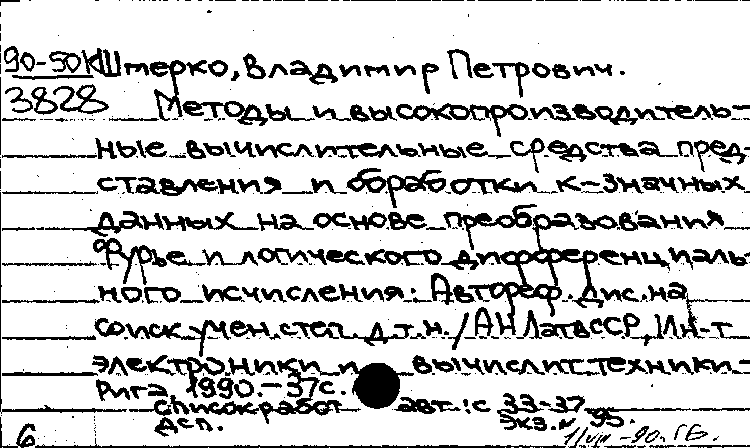 90-50К Штерко, Владимир Петрович.
3828 Методы и высокопроизводитель-
ные вычислительные средства пред-
ставления и обработки к-значных
данных на основе преобразования
Фурье и логического дифференциаль-
ного исчисления: Автореф. дис. на
соиск. учен. степ. д.т.н. / АН ЛатвССР, Ин-т
электроники и вычислит. техники.-
Рига 1990.-37с.
Список работ авт.: с 33-37.
Дсп. Экз. N 95.
6 11/VIII-90. ГБ.